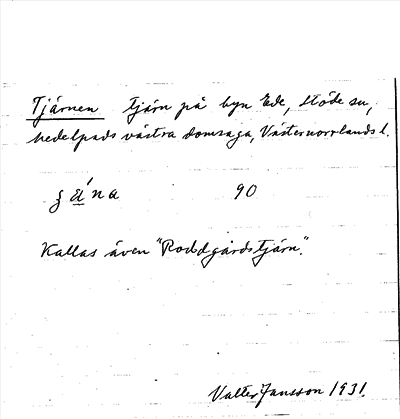 Tjärnen tjärn på byn Ede, Stöde sn,
Medelpads västra domsaga, Västernorrlands l.
ʒä́na 90
Kallas även "Roddgårdstjärn".
Valter Jansson 1931.